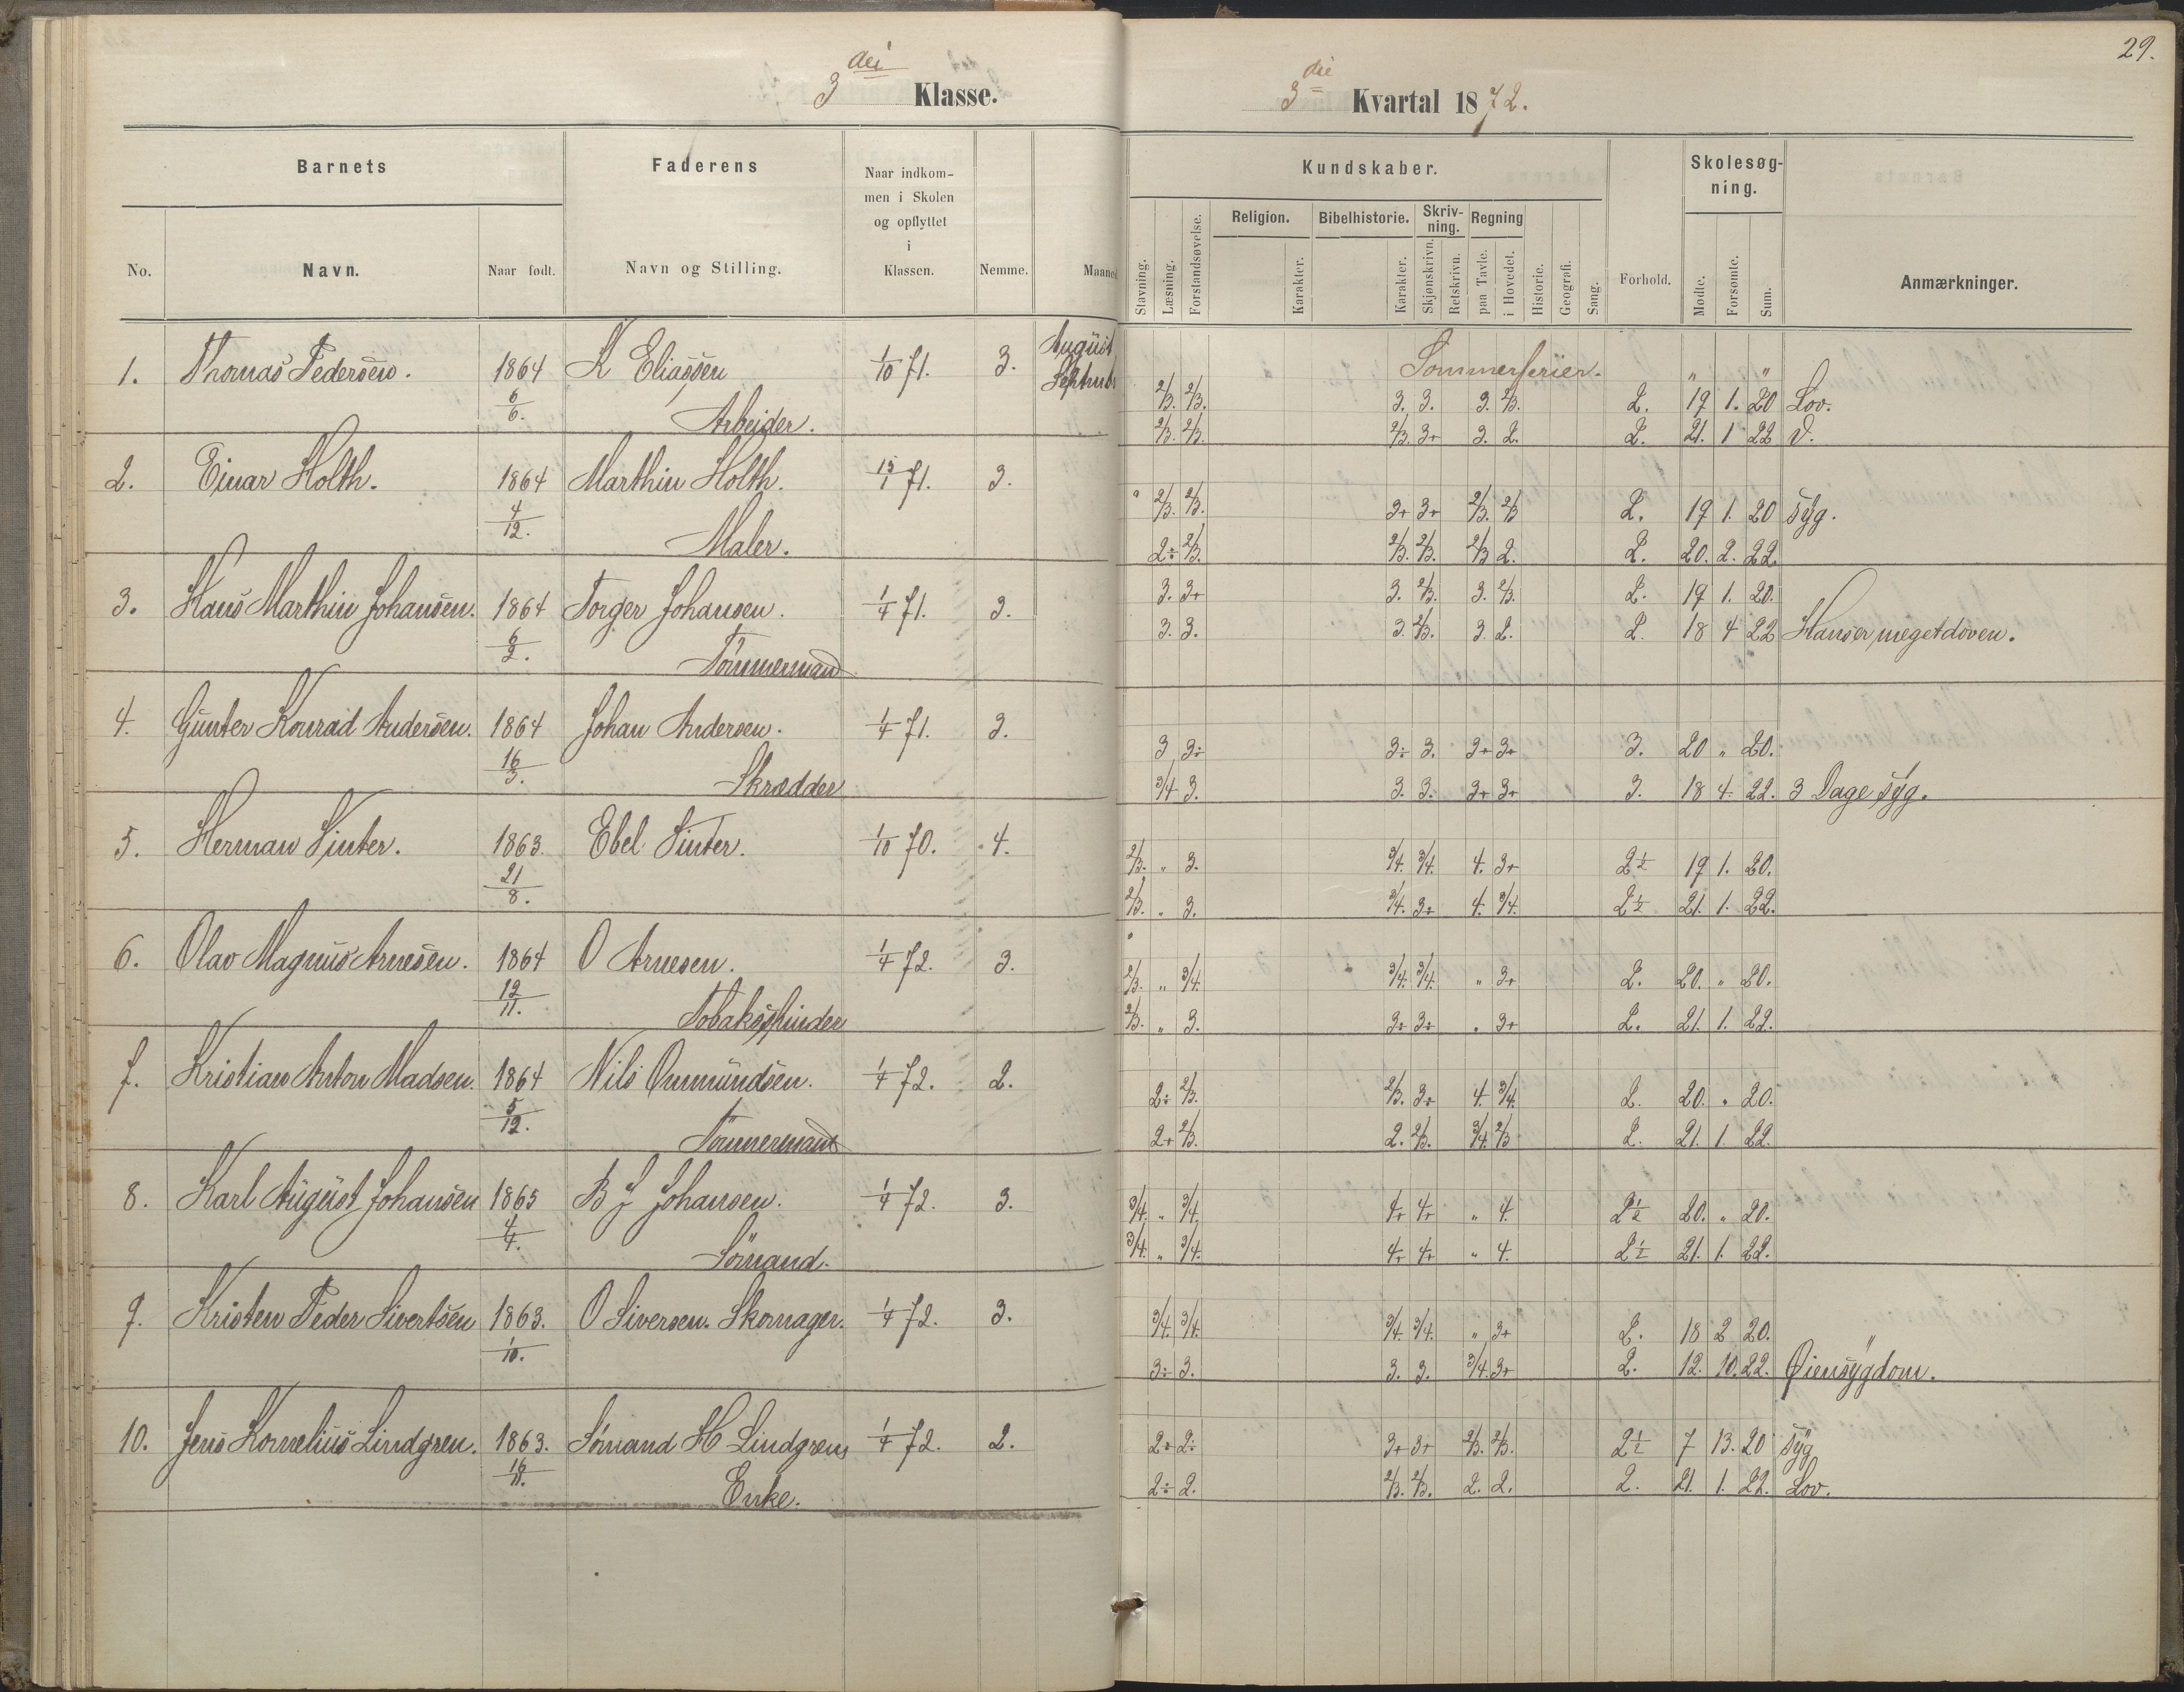 29.
3 die Klasse.
3 die Kvartal 1872.
Barnets
Faderens
Naar indkom-
men i Skolen
og opflyttet
i
Klassen.
No.
Navn.
Naar født.
Navn og Stilling.
Nemme.
Maaned
Kundskaber.
Skolesøg-
ning.
Religion.
Bibelhistorie.
Skriv-
ning.
Regning
Stavning.
Læsning.
Forstandsøvelse.
Karakter.
Karakter.
Skjønskrivn.
Retskrivn.
paa Tavle.
i Hovedet.
Historie.
Geografi.
Sang.
Forhold.
Mødte.
Forsømte.
Sum.
Anmærkninger.
1. Thomas Pedersen. 1864 K Eliassen 1/10 71. 3. August Sommerferier. " "
6/6. Arbeider. Septembr 2/3. 2/3. 3. 3. 3. 2/3. 2. 19 1. 20 Lov.
2/3. 2/3. 2/3. 3+ 3. 2. 2. 21. 1 22 D.
2. Einar Holth. 1864 Marthin Holth. 71. 3.
4/12. Maler. 2/3. 2/3. 3+ 3+ 2/3. 2/3 2. 19 1. 20 Syg.
2÷ 2/3. 2/3. 2/3. 2/3 2. 2. 20. 2. 22.
3. Hans Marthin Johansen. 1864 Torger Johansen. 1/4 71. 3. 3. 3+ 3. 2/3. 3. 2/3. 2. 19 1. 20.
6/2. Tömmermand 3. 3. 3. 2/3. 3. 2. 2. 18 4 22 Han er meget doven.
4. Gunter Konrad Andersen. 1864 Johan Andersen. 1/4 71. 3. 3 3÷ 3÷ 3. 3+ 3+ 3. 20 " 20.
16/3. Skrædder 3/4 3. 3. 3. 3+ 3+ 3. 18 4. 22. 3 Dage Syg.
5. Herman Vinter. 1863. Ebel Vinter. 1/10 70. 4. 2/3. " 3. 3/4. 3/4. 4. 3+ 2½ 19 1. 20.
21/8. 2/3. " 3. 3/4. 3÷ 4. 3/4. 2½ 21. 1. 22.
6. Olav Magnus Arnesen. 1864 O Arnesen. 1/4 72. 3. 2/3. " 3/4. 3/4. 3/4. " 3+ 2. 20. " 20.
12/11. Tobakspinder 2/3. " 3. 3÷ 3÷ " 3+ 2. 21. 1. 22.
7. Kristian Anton Madsen. 1864 Nils Ommundsen. 1/4 72. 2. 2÷ 2/3. 2/3. 3+ 4. 3/4. 2. 20. " 20.
5/12. Tömmermand 2+ 2/3. 2. 2/3. 3/4. 2/3 2. 21. 1. 22.
8. Karl August Johansen 1865 B J Johansen. 1/4 72. 3. 3/4. " 3/4. 4+ 4+ " 4. 2½ 20. " 20.
4/4. Sömand. 3/4. " 3/4. 4+ 4+ " 4. 2½ 21. 1. 22.
9. Kristen Peder Sivertsen 1863. O Siversen. Skomager. 1/4 72. 3. 3/4. 3/4. 3/4. 3/4. " 3+ 2. 18 2 20. "
10. 3÷ 3. 3. 3. 3/4. 3+ 2. 12. 10. 22. Øiensygdom.
10. Jens Kornelius Lindgren. 1863. Sömand H Lindgrens 1/4 72. 2. 2÷ 2÷ 3+ 3+ 2/3. 2/3. 2½ 7 13. 20 Syg
Enke. 2÷ 2. 2/3. 2/3. 2. 2. 2. 21. 1. 22. Lov.